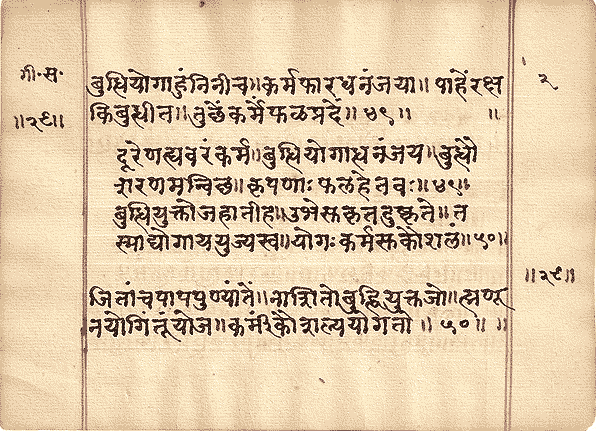 गी॰स॰
॥२९॥
२
बुद्धियोगाहुंनिनीच॥कर्मफारधनंजया॥ पाहेंरक्ष
किबुद्धीत॥तुछेंकर्मेंफळप्रदें॥४९॥ ॥
दूरेणह्यवरंकर्म॥बुद्धियोगाधनंजय॥बुद्धौ
शरणमन्विछ॥कृपणाः फलहेतवः॥४९॥
बुद्धियुक्तोजहातीह॥उभेसकृतदुष्कृते॥त
स्माद्योगाययुज्यस्व॥योगः कर्मसकौशलं॥५०॥
॥२९॥
जितांचपापपुण्यांतें॥नाशितोबुद्धियुक्तजो॥म्हणू
नयोगिंतूंयोज॥कर्मीकौशल्ययोगतो ॥५०॥ ॥